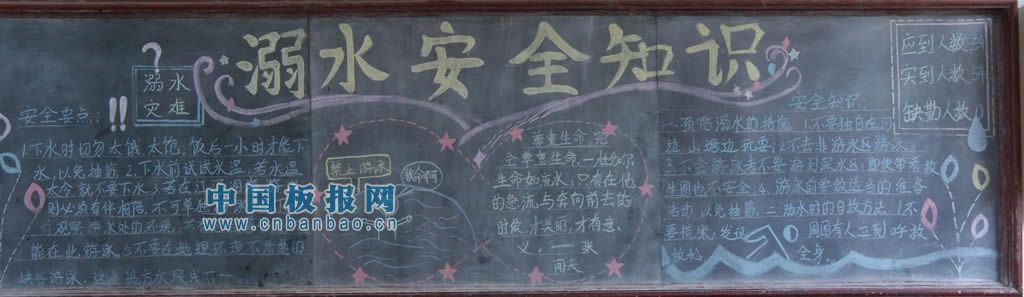 溺水安全知识
?
溺水
灾难
!!
安全要点:
1.下水时切勿太饿、太饱,饭后一小时才能下
水,以免抽筋;2.下水前试试水温,若水温
太冷就不要下水;3.若在
则必须有伴相陪,不可单
前观察游泳处的环境,若
能在此游泳;5.不要在地理环境不清楚的
峡谷游泳。这些地方水深浅不一
禁止游泳
救命啊
尊重生命,完
全尊重生命
生命如流水,只有在他
的急流与奔向前去的
时候,才美丽,才有意
义。——张
闻天
安全知识
一、预防溺水的措施:1.不要独自在河
边、山塘边玩耍;2.不去非游泳区游泳;
3.不会游泳者不要游到深水区,即使带着救
生圈也不安全;4.游泳前要做适当的准备
活动,以免抽筋。二、溺水时的自救方法:1.不
要慌张,发现周围有人立刻呼救
放松全身
应到人数54
实到人数54
缺勤人数
中国板报网
www.cnbanbao.cn